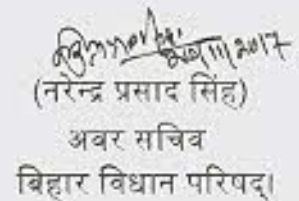 (नरेन्द्र प्रसाद सिंह)
अवर सचिव
बिहार विधान परिषद्।